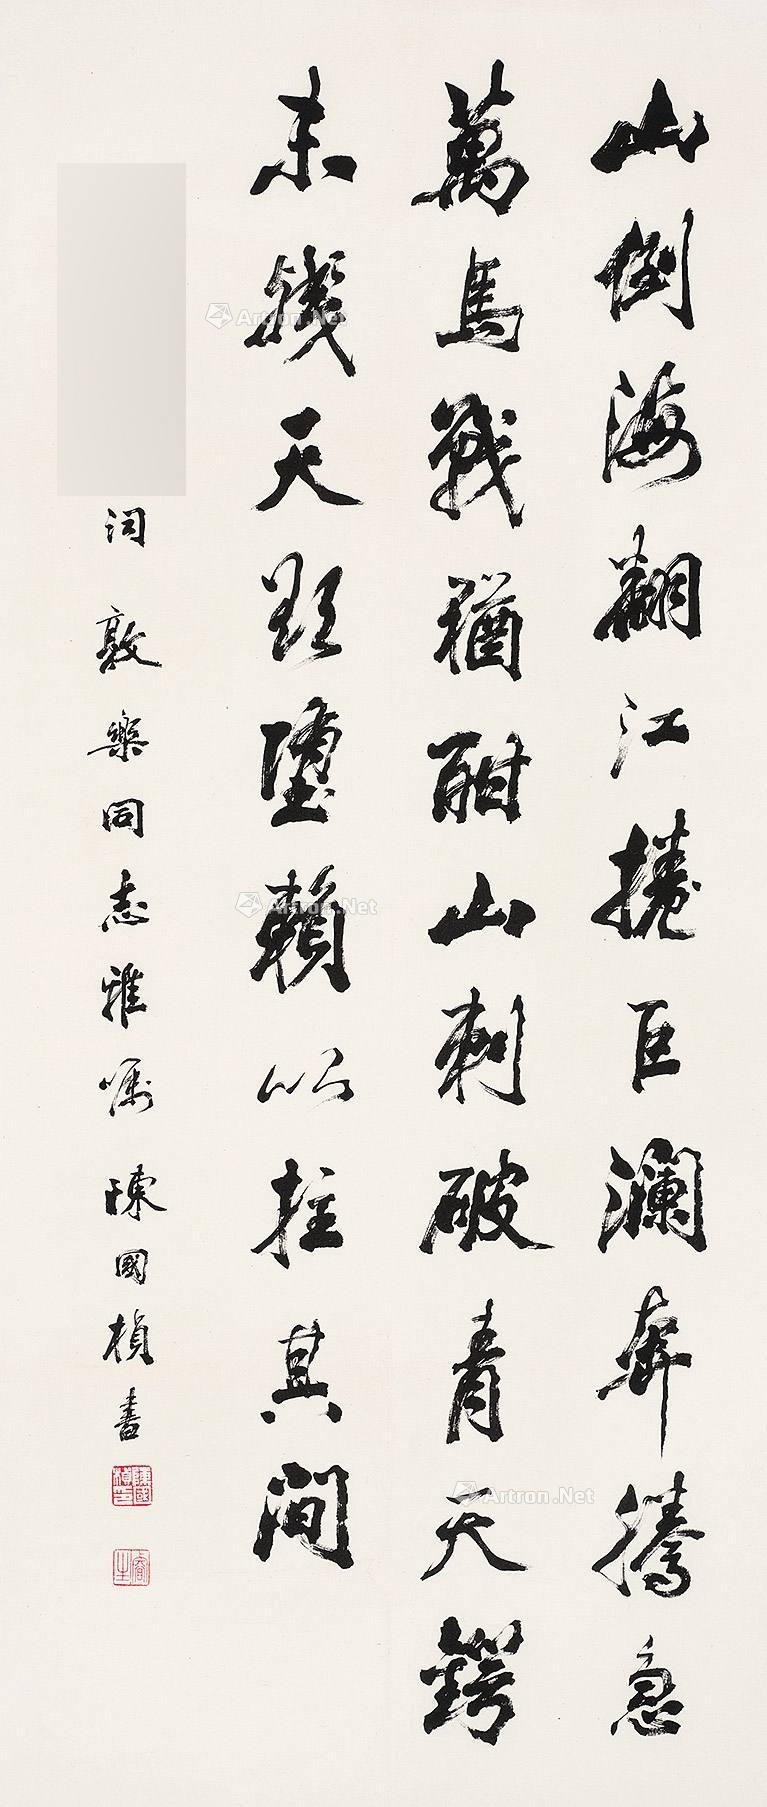 山倒海翻江捲巨澜奔騰急
萬馬戰猶酣山刺破青天鍔
未殘天欲墮賴以拄其間
词敦樂同志雅嘱陳國楨書
Artron.Net
Artron.Net
Artron.Net